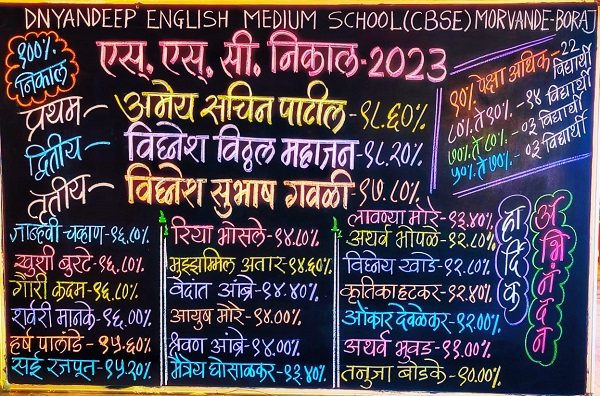 DNYANDEEP ENGLISH MEDIUM SCHOOL(CBSE) MORVANDE-BORAJ
१००%
निकाल
एस. एस. सी. निकाल-2023
प्रथम - अमेय सचिन पाटील - ९८.६०%
द्वितीय - विघ्नेश विठ्ठल महाजन - ९८.२०%
तृतीय - विघ्नेश सुभाष गवळी - ९७.८०%
९०% पेक्षा अधिक - 22 विद्यार्थी
८०% ते ९०% - १४ विद्यार्थी
७०% ते ८०% - ०३ विद्यार्थी
५०% ते ७०% - ०३ विद्यार्थी
जान्हवी चव्हाण-९६.८०%
खुशी बुरटे-९६.८०%
गौरी कदम-९६.८०%
शर्वरी मानके-९६.००%
हर्ष पालांडे - ९५.६०%
सई रजपूत-९५.२०%
रिया भोसले-९४.८०%
मुझ्झम्मिल अतार-९४.६०%
वेदांत आंब्रे-९४.४०%
आयुष मोरे-९४.००%
श्रवण आंब्रे-९४.००%
मैत्रेय घोसाळकर-९३.४०%
लावण्या मोरे-९३.४०%
अथर्व भोपळे-९२.८०%
विघ्नेय खाडे-९२.८०%
कृतिका हटकर-९२.४०%
ओंकार देवळेकर-९२.००%
अथर्व भुवड-९१.००%
तनुजा बोडके-९०.००%
हार्दिक
अभिनंदन